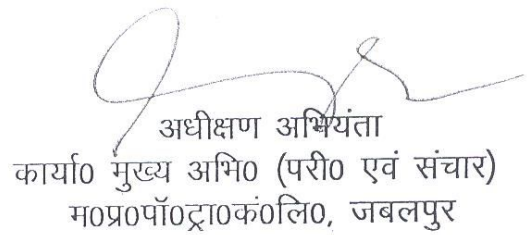 अधीक्षण अभियंता
कार्या0 मुख्य अभि0 (परी0 एवं संचार)
म0प्र0पॉ0ट्रा0कं0लि0, जबलपुर